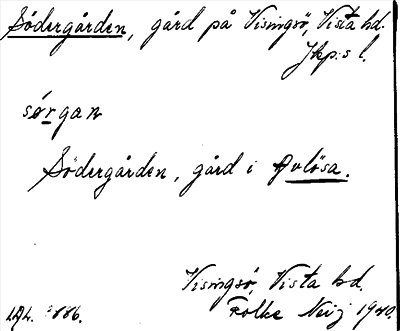 Södergården, gård på Visingsö, Vista hd.
Jkp:s l.
sørgan
Södergården, gård i Avlösa.
Visingsö, Vista hd.
Folke Neij 1940.